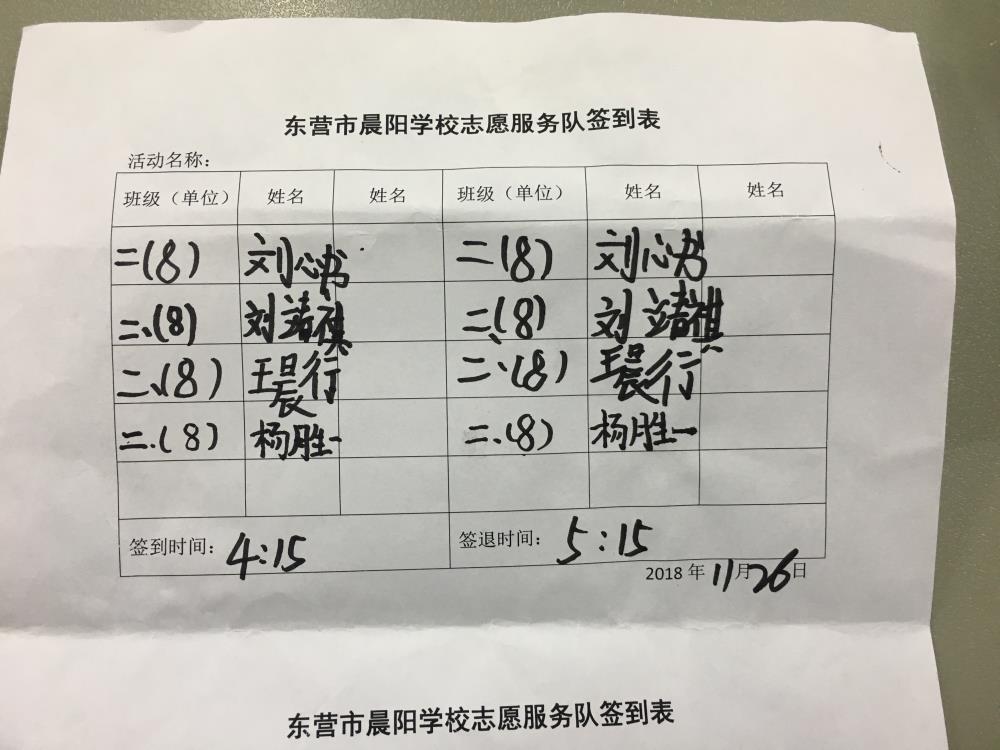 东营市晨阳学校志愿服务队签到表
活动名称：
班级（单位） 姓名 姓名 班级（单位） 姓名 姓名
二(8) 刘心书 二(8) 刘心书
二、(8) 刘靖祺 二、(8) 刘靖祺
二、(8) 王晨行 二、(8) 王晨行
二.(8) 杨胜一 二、(8) 杨胜一
签到时间：4:15 签退时间：5:15
2018年11月26日
东营市晨阳学校志愿服务队签到表